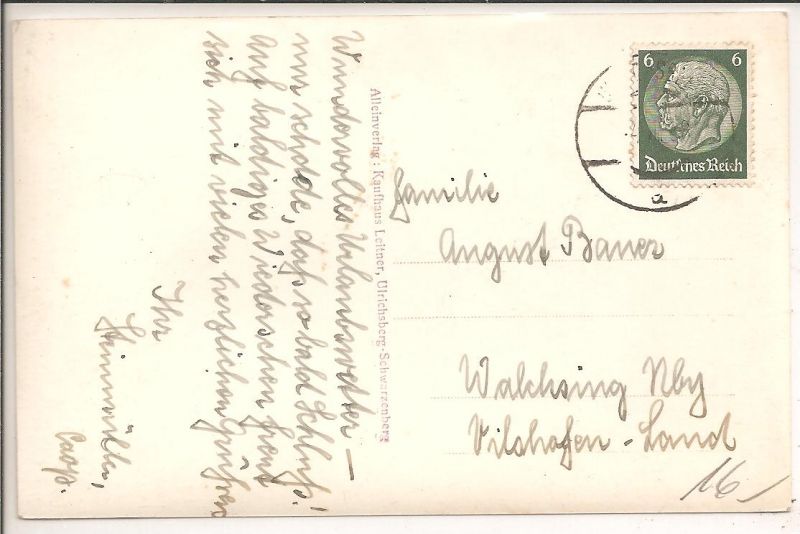 Wundervolles Urlaubswetter —
nur schade, daß so bald Schluß!
Auf baldiges Wiedersehen freut
sich mit vielen herzlichen Grüßen
Ihr
Alleinverlag: Kaufhaus Leitner, Ulrichsberg-Schwarzenberg
6 6
Deutsches Reich
a
Familie
August Bauer
Walchsing Nby
Vilshofen-Land
16